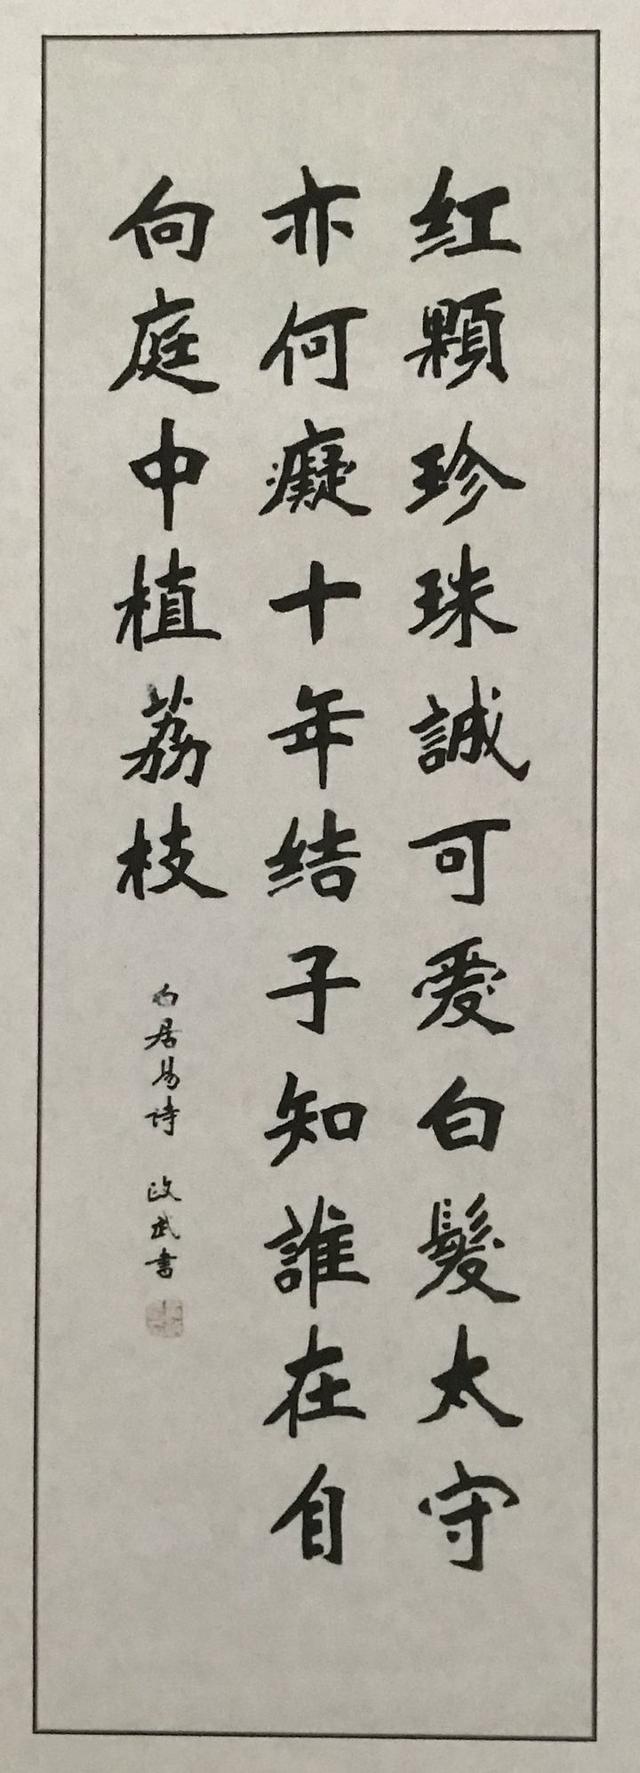 红顆珍珠誠可愛白髮太守
亦何癡十年结子知誰在自
向庭中植荔枝
白居易诗 政武書